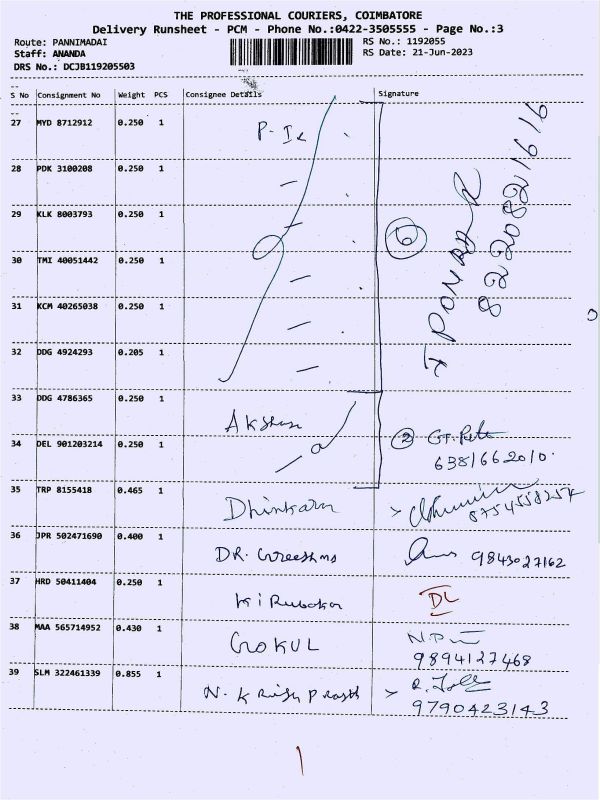 THE PROFESSIONAL COURIERS, COIMBATORE
Delivery Runsheet - PCM - Phone No.:0422-3505555 - Page No.:3
Route: PANNIMADAI
RS No.: 1192055
Staff: ANANDA
RS Date: 21-Jun-2023
DRS No.: DCJB119205503
S No Consignment No Weight PCS Consignee Details Signature
27 MYD 8712912 0.250 1
28 PDK 3100208 0.250 1
29 KLK 8003793 0.250 1
30 TMI 40051442 0.250 1
31 KCM 40265038 0.250 1
32 DDG 4924293 0.205 1
6
8220821616
33 DDG 4786365 0.250 1
34 DEL 901203214 0.250 1 2
6381662010
35 TRP 8155418 0.465 1 Dhinkaran
8754558254
36 JPR 502471690 0.400 1 DR. Greeshma 9843027162
37 HRD 50411404 0.250 1 Kirubakar DL
38 MAA 565714952 0.430 1 GOKUL
9894127468
39 SLM 322461339 0.855 1 N. Krish Prasth
9790423143